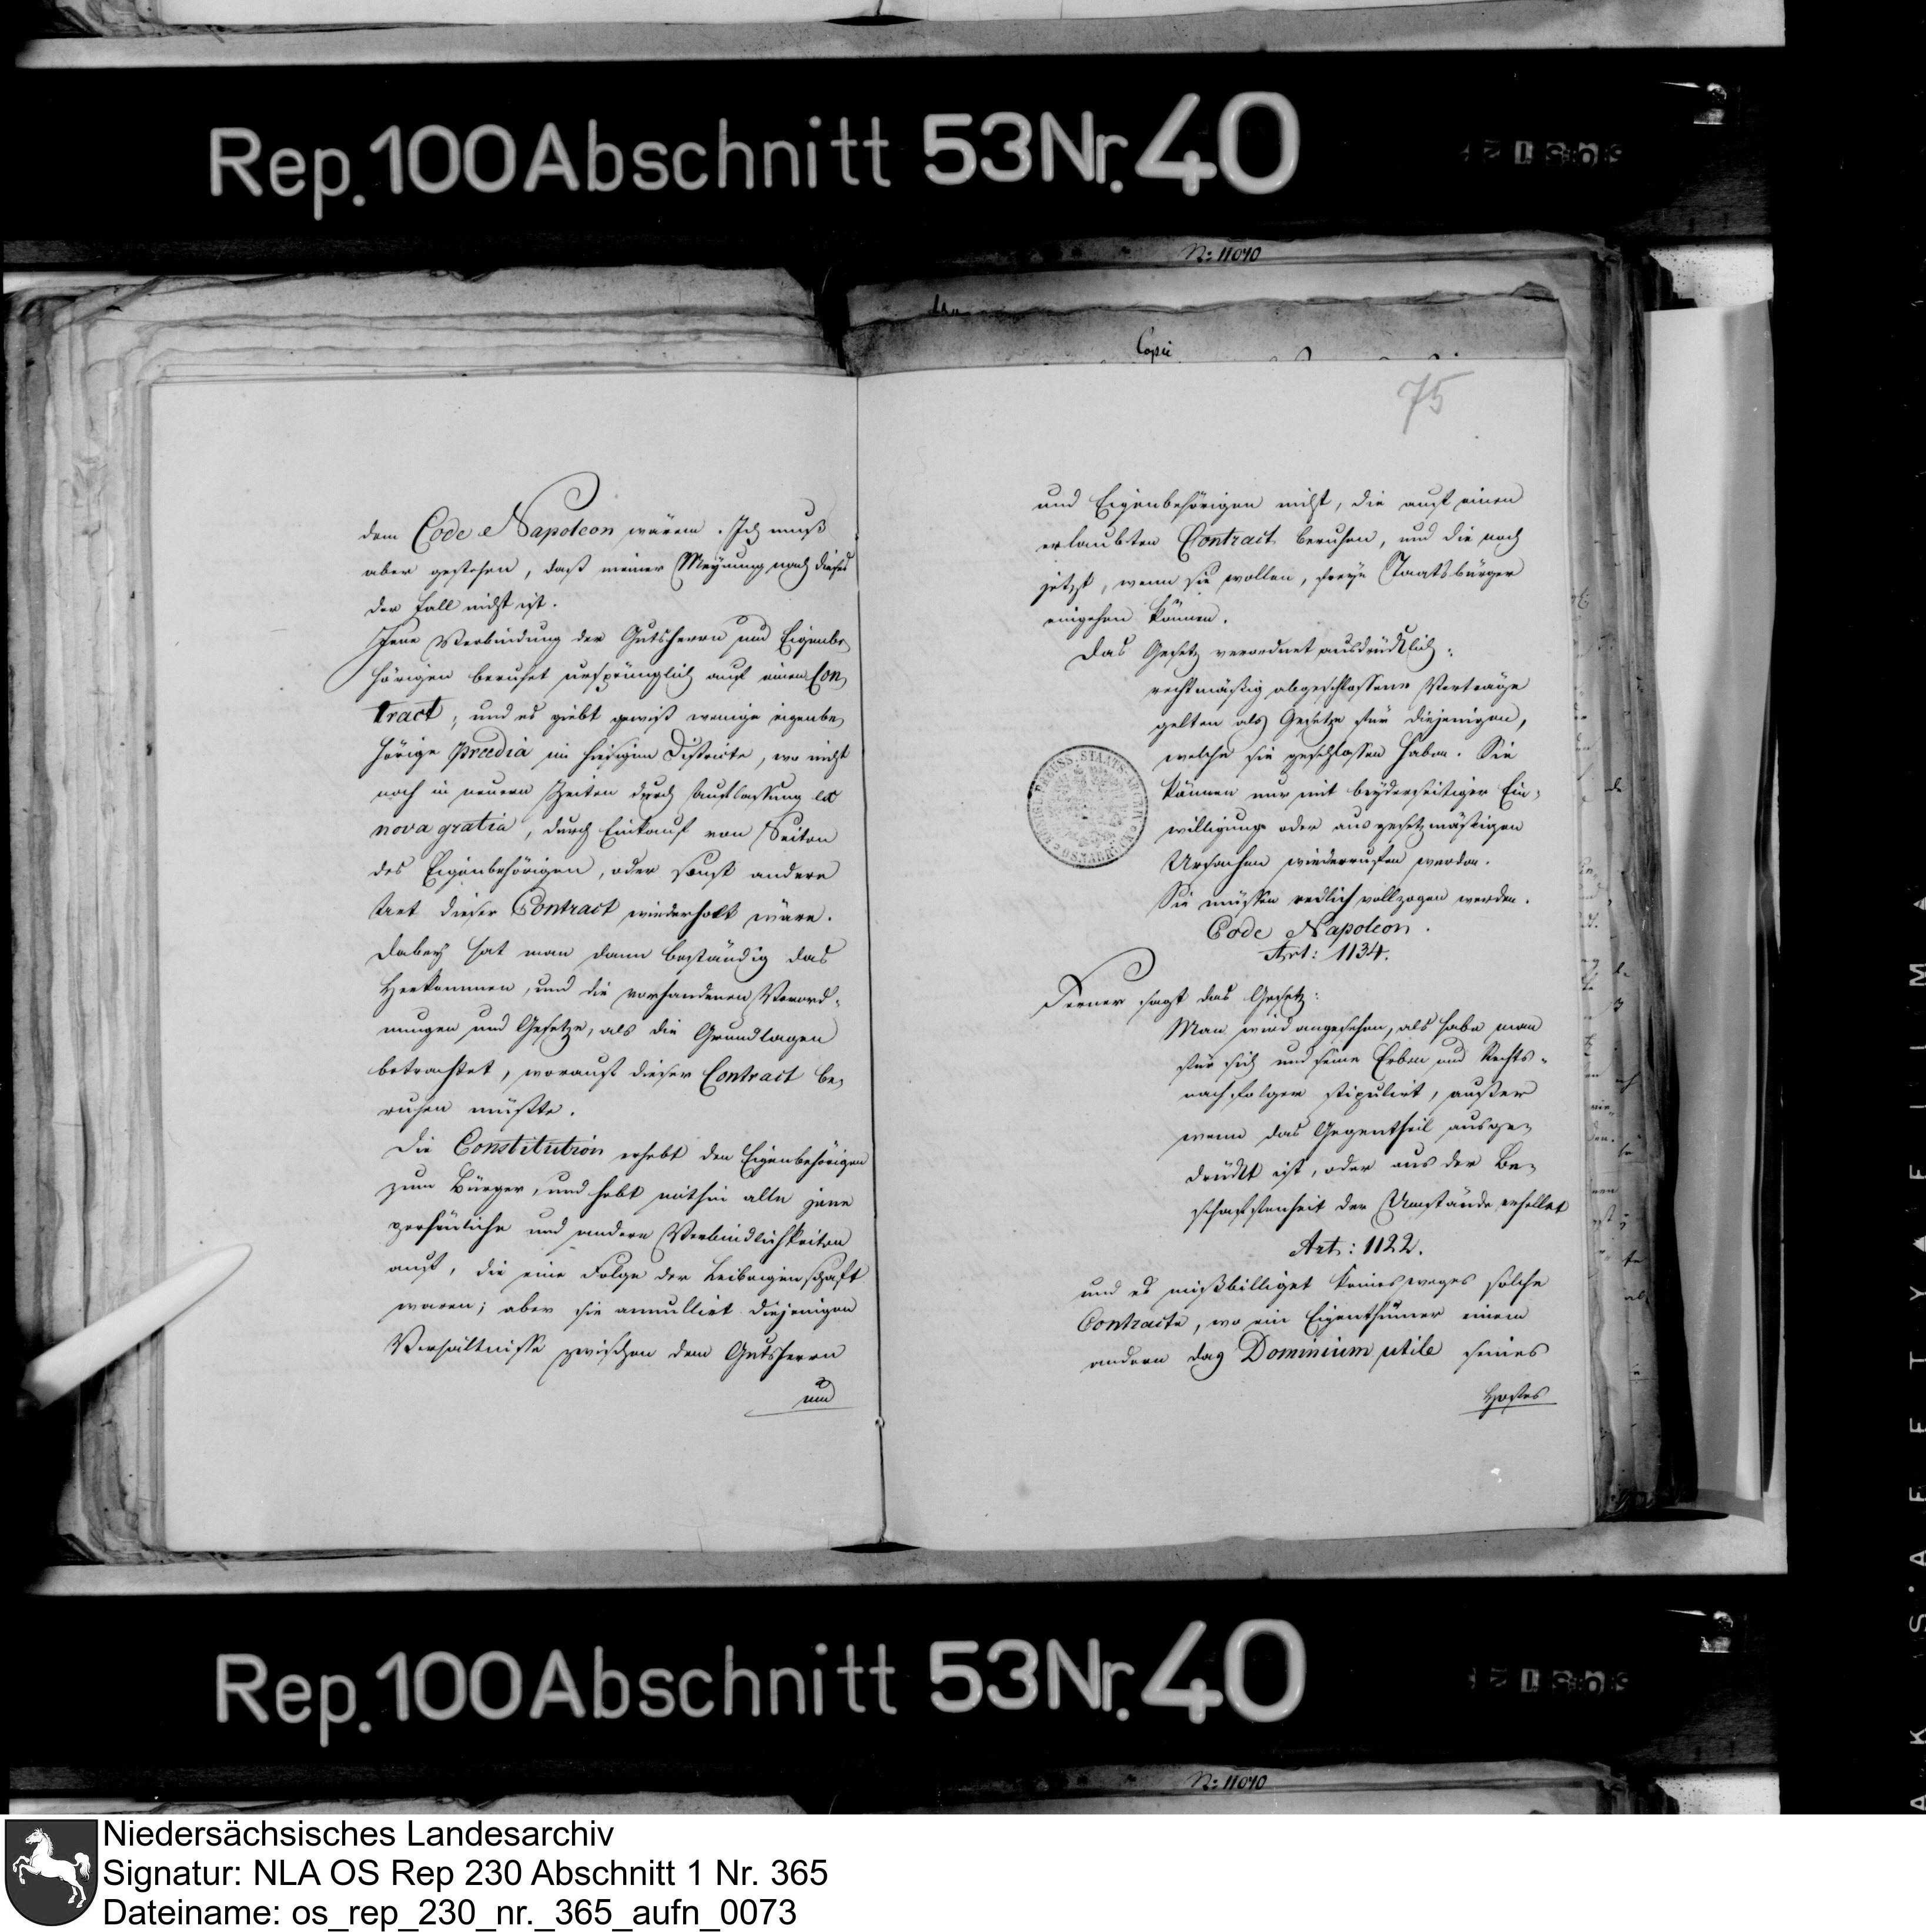 Rep. 100 Abschnitt 53 Nr. 40
No: 11070
Copie
75
dem Code Napoleon wären. Ich muß
aber gestehen, daß meiner Meynung nach dieses
der Fall nicht ist.
Jene Verbindung der Gutsherrn und Eigenbe,
hörigen beruhet ursprünglich auf einen Con,
tract; und es giebt gewiß wenige eigenbe,
hörige praedia im hiesigen Districte, wo nicht
noch in neuern Zeiten durch Auslassung ex
nova gratia, durch Einkauf von Seiten
des Eigenbehörigen, oder sonst andere
Art dieser Contract wiederholt wäre.
Dabey hat man dann beständig das
Herkommen, und die vorhandenen Verord-
nungen und Gesetze, als die Grundlagen
betrachtet, worauf dieser Contract be,
ruhen müßte.
Die Constitution erhebt den Eigenbehörigen
zum Bürger, und hebt mithin alle jene
persönliche und andere Verbindlichkeiten
auf, die eine Folge der Leibeigenschaft
waren; aber sie annullirt diejenigen
Verhältnisse zwischen dem Gutsherrn
und
und Eigenbehörigen nicht, die auf einen
erlaubten Contract beruhen, und die noch
jetzt, wenn sie wollen, freye Staatsbürger
eingehen können.
Das Gesetz verordnet ausdrücklich:
rechtmäßig abgeschlossene Verträge
gelten als Gesetze für diejenigen,
welche sie geschlossen haben. Sie
können nur mit beyderseitiger Ein-
willigung oder aus gesetzmäßigen
Ursachen wiederrufen werden.
Sie müssen redlich vollzogen werden.
Code Napoleon.
Art: 1134.
Ferner sagt das Gesetz:
Man wird angesehen, als habe man
für sich und seine Erben und Rechts-
nachfolger stipulirt, außer
wenn das Gegentheil ausge,
drückt ist, oder aus der Be,
schaffenheit der Umstände erhellet
Art: 1122.
und es mißbilliget keinesweges solche
Contracte, wo ein Eigenthümer einem
andern das Dominium utile seines
Hofes
PREUSS. STAATS-ARCHIV
OSNABRÜCK
Rep. 100 Abschnitt 53 Nr. 40
No: 11070
Niedersächsisches Landesarchiv
Signatur: NLA OS Rep 230 Abschnitt 1 Nr. 365
Dateiname: os_rep_230_nr._365_aufn_0073